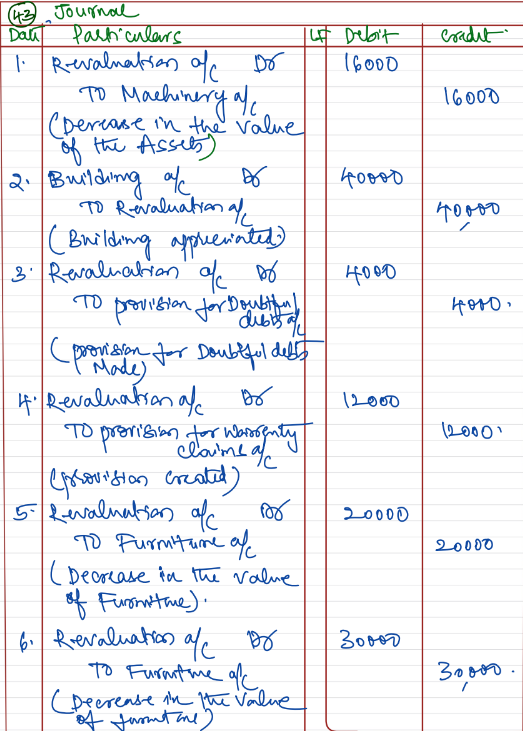 43. Journal
Date Particulars LF Debit Credit
1. Revaluation a/c Dr 16000
To Machinery a/c 16000
(Decrease in the value
of the Assets)
2. Building a/c Dr 40000
To Revaluation a/c 40,000
(Building appreciated)
3. Revaluation a/c Dr 4000
To provision for Doubtful 4000.
debts a/c
(provision for Doubtful debts
Made)
4. Revaluation a/c Dr 12000
To provision for warrenty 12000.
claims a/c
(provision created)
5. Revaluation a/c Dr 20000
To Furniture a/c 20000
(Decrease in the value
of Furniture).
6. Revaluation a/c Dr 30000
To Furniture a/c 30,000.
(Decrease in the value
of furniture)